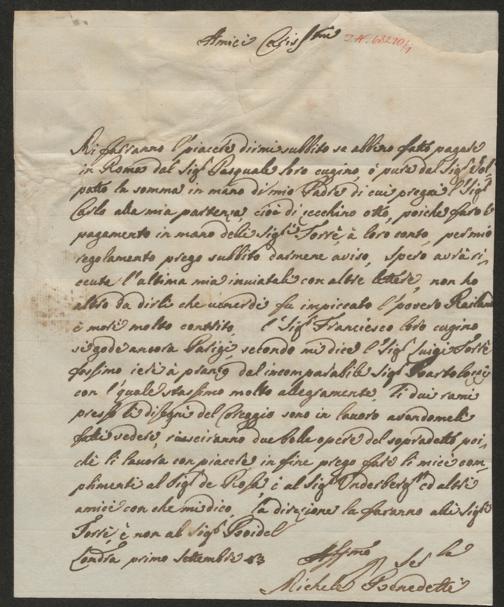 Amici Cariss.mi
I.N. 68220/1
Mi faranno l'piacere dirmi subbito se abbino fatto pagare
in Roma dal Sig.r Pasquale loro cugino, ò pure dal Sig.r Vol
patto la somma in mano di mio Padre di cui pregai l'Sig.r
Carlo alla mia partenza, cioè di zecchino otto, poiche farò l
pagamento in mano delli Sig.ri Torre, à loro conto, per mio
regolamento prego subbito darmene aviso, Spero avrà ri
ceuta l'ultima mia inviatali con altre lettere, non ho
altro da dirli che venerdi fu impiccato l'povero
è mori molto contrito, l'Sig.r Francesco loro cugino
si gode ancora Parigi, secondo mi dice l'Sig.r Luigi Torre
fossimo ieri à pranzo dal incomparabile Sig.r Bartolozzi
con l'quale stassimo molto allegramente, li dui rami
presso li disegni del Coreggio sono in lavoro avendomeli
fatti vedere, riusciranno due belle opere del sopradetto poi
chè li lavora con piacere, in fine prego fare li miei com
plimenti al Sig.r de Rossi è al Sig.r Underberg ed altri
amici con che mi dico, La direzione la faranno alli Sig.ri
Torre, è non al Sig.r Boidel
Londra primo settembre 83
Aff.mo Ser.
Michele Benedetti